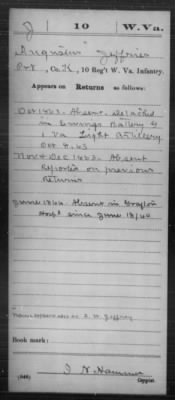 J | 10 | W. Va.
Augustus Jeffries
Pvt, Co. K, 10 Reg't W. Va. Infantry.
Appears on Returns as follows:
Oct 1863. Absent. Detached
in Ewings Battery G
1 Va Light Artillery
Oct 8.63
Nov & Dec 1863. Absent
reported on previous
returns
June 1864. Absent in Grafton
Hosp'l since June 18/64
Name appears also as A. W. Jeffrey
Book mark:
(646)
Copyist.